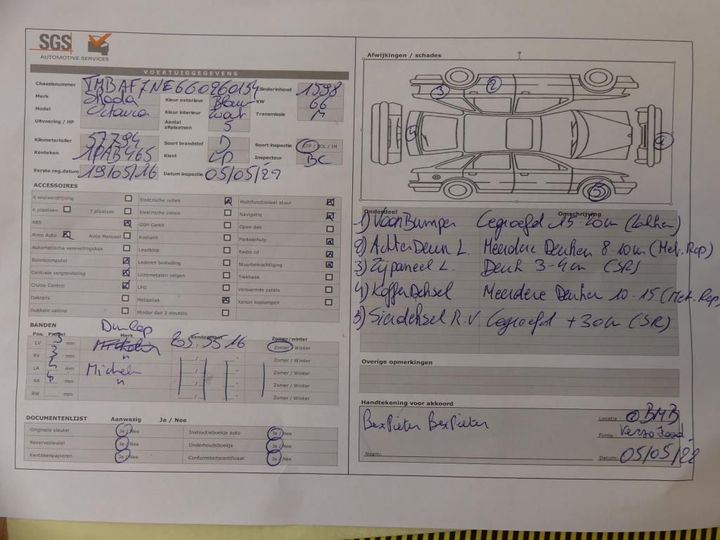 SGS
AUTOMOTIVE SERVICES
VOERTUIGGEGEVENS
Chassisnummer TMBAF7NE660960154 Cilinderinhoud 1598
Merk Skoda Kleur exterieur Blauw KW 66
Model Octavia Kleur interieur Zwart Transmissie M
Uitvoering / HP Aantal zitplaatsen 5
Kilometerteller 57794 Soort brandstof D Soort inspectie
Kenteken 1PAB465 Klant LP Inspecteur BC
Eerste reg.datum 19/05/16 Datum inspectie 05/05/22
ACCESSOIRES
4 wielaandrijving Elektrische ruiten Multifunctioneel stuur
4 plaatsen 7 plaatsen Elektrische zetels Navigatie
ABS GSM Carkit Open dak
Airco Auto Airco Manueel Koelunit Parkeerhulp
Automatische versnellingsbak Laadklep Radio cd
Boordcomputer Lederen bekleding Stuurbekrachtiging
Centrale vergrendeling Lichtmetalen velgen Trekhaak
Cruise Control LPG Verwarmde zetels
Dakrails Metaallak Xenon koplampen
Dubbele cabine Minder dan 2 sleutels
BANDEN
Pos. Profiel Merk Bandenmaat Zomer/winter
LV 3 mm Dunlop 205.55 16 Zomer / Winter
RV 3 mm " Zomer / Winter
LA 4 mm Michelin Zomer / Winter
RA 4 mm " Zomer / Winter
RW mm Zomer / Winter
DOCUMENTENLIJST Aanwezig Ja / Nee
Originele sleutel Ja / Nee Instructieboekje auto Ja / Nee
Reservesleutel Ja / Nee Onderhoudsboekje Ja / Nee
Kentekenpapieren Ja / Nee Conformiteitcertificaat Ja / Nee
Afwijkingen / schades
3 2 4 1 5
Onderdeel Omschrijving
1) VoorBumper Gegroefd 15-20cm (Lakken)
2) AchterDeur L. Meerdere Deuken 8-10cm (Met. Rep)
3) Zijpaneel L. Deuk 3-4cm (SR)
4) KofferDeksel Meerdere Deuken 10-15 (Met. Rep)
5) Sierdeksel R.V. Gegroefd +30cm (SR)
Overige opmerkingen
Handtekening voor akkoord
Naam:
Locatie : @BMB
Firma :
Datum: 05/05/22